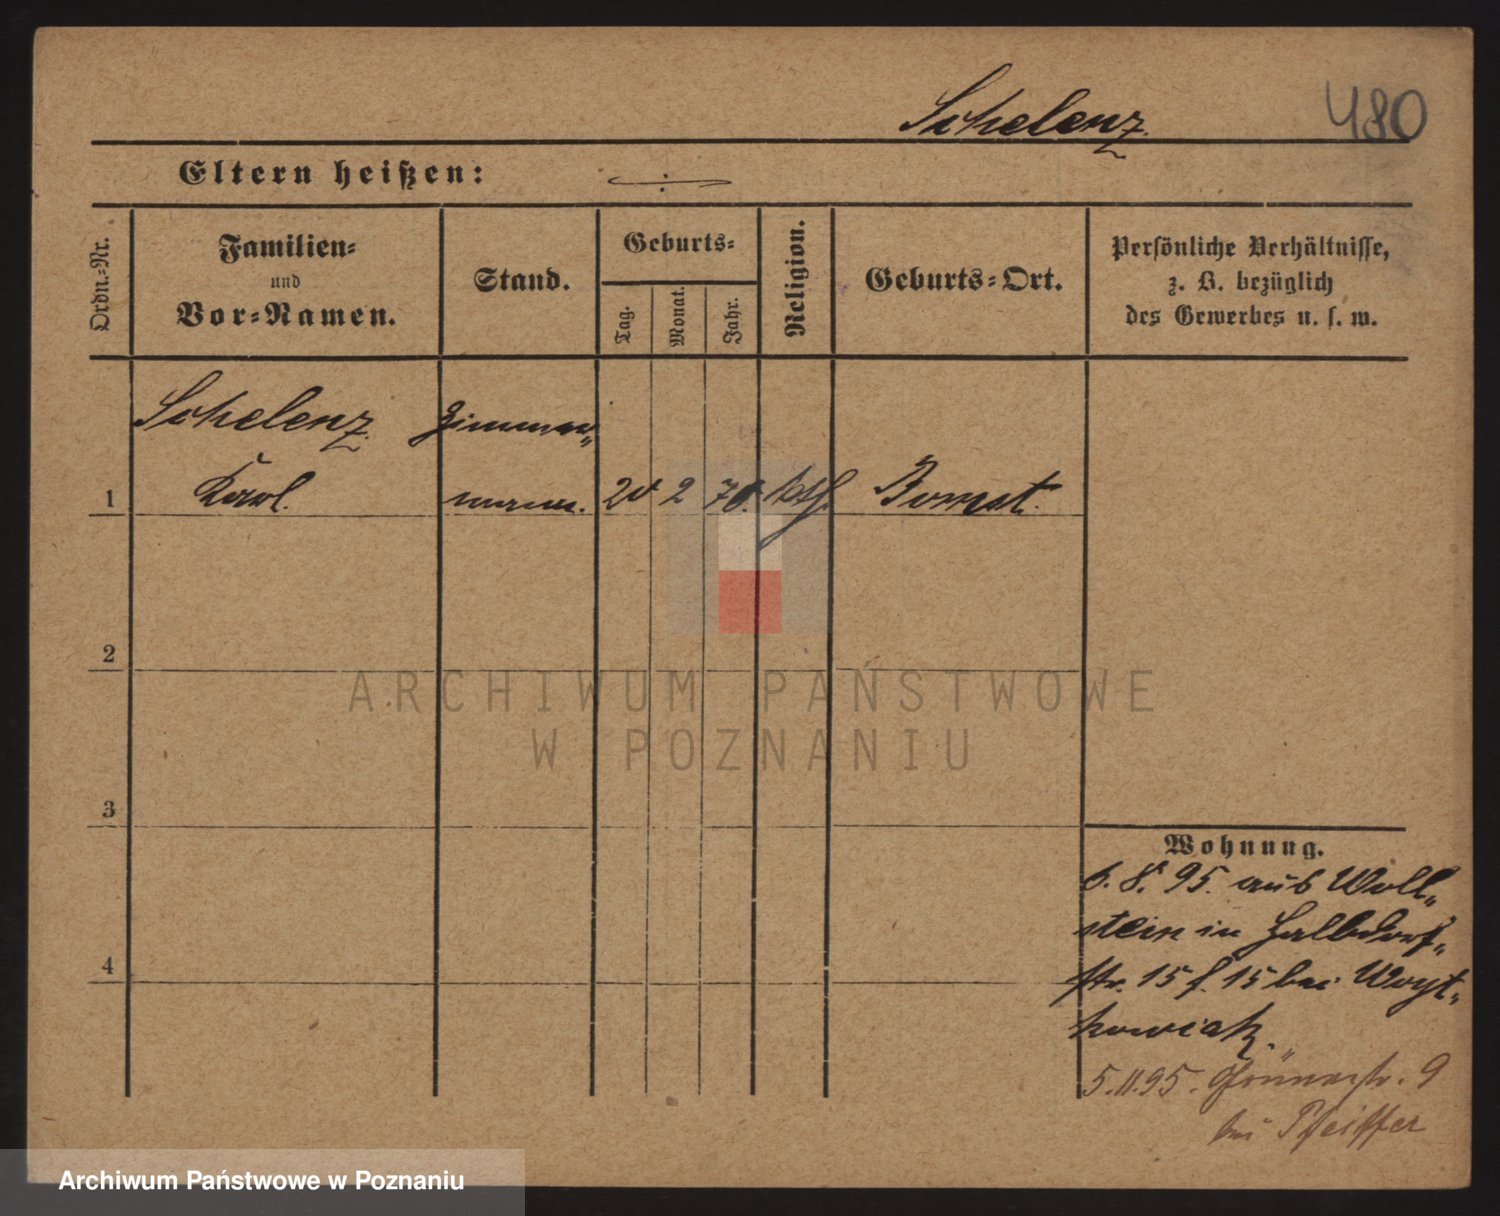 Schelenz.
480
Eltern heißen:
Ordn.-Nr.
Familien-
und
Vor-Namen.
Stand.
Geburts-
Tag.
Monat.
Jahr.
Religion.
Geburts-Ort.
Persönliche Verhältnisse,
z. B. bezüglich
des Gewerbes u. s. w.
Schelenz.
Zimmer-
1 Karl. mann. 2 kth. Bomst.
2
ARCHIWUM PAŃSTWOWE
W POZNANIU
3
Wohnung.
6. 8. 95. aus Woll-
stein in Halbdorf-
4
str. 15 15 bei Woyt-
kowiak.
5.11.95. str. 9
bei Pfeiffer
Archiwum Państwowe w Poznaniu